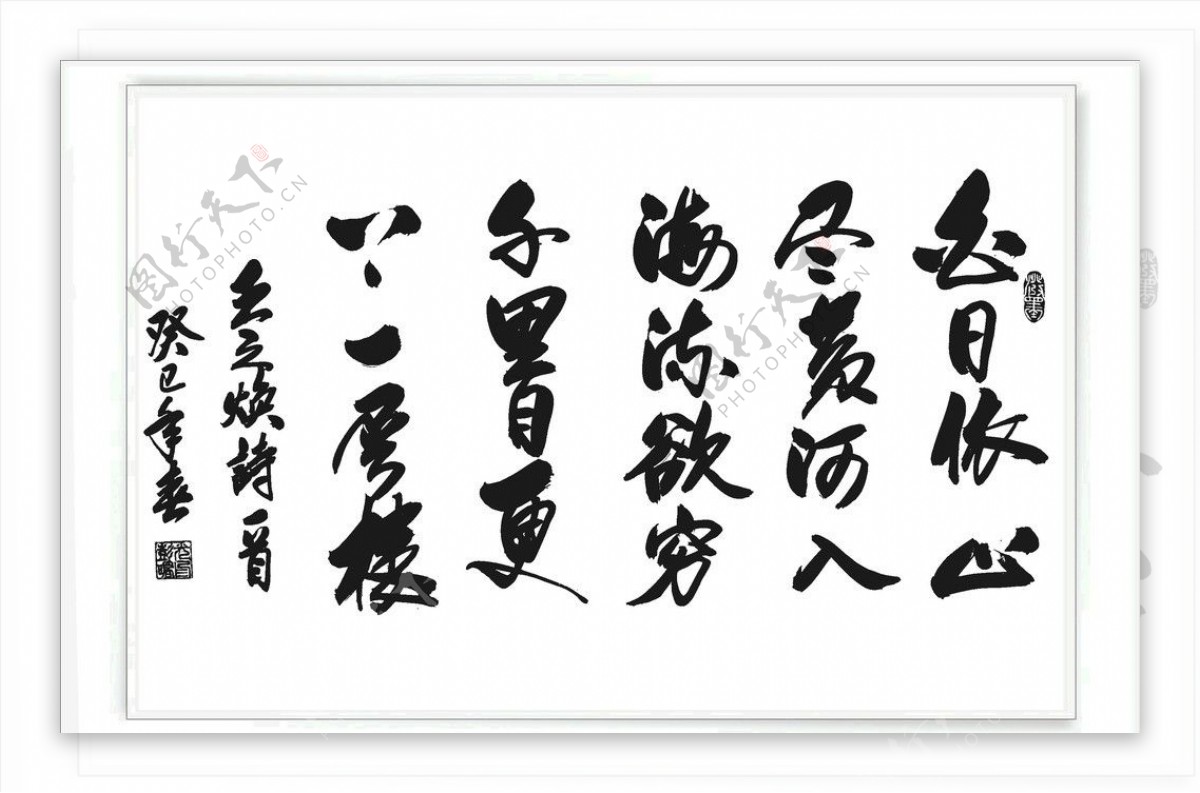 白日依山
尽黄河入
海流欲穷
千里目更
上一层楼
王之焕詩一首
癸巳年春
图行天下
PHOTOPHOTO.CN
图行天下
PHOTOPHOTO.CN